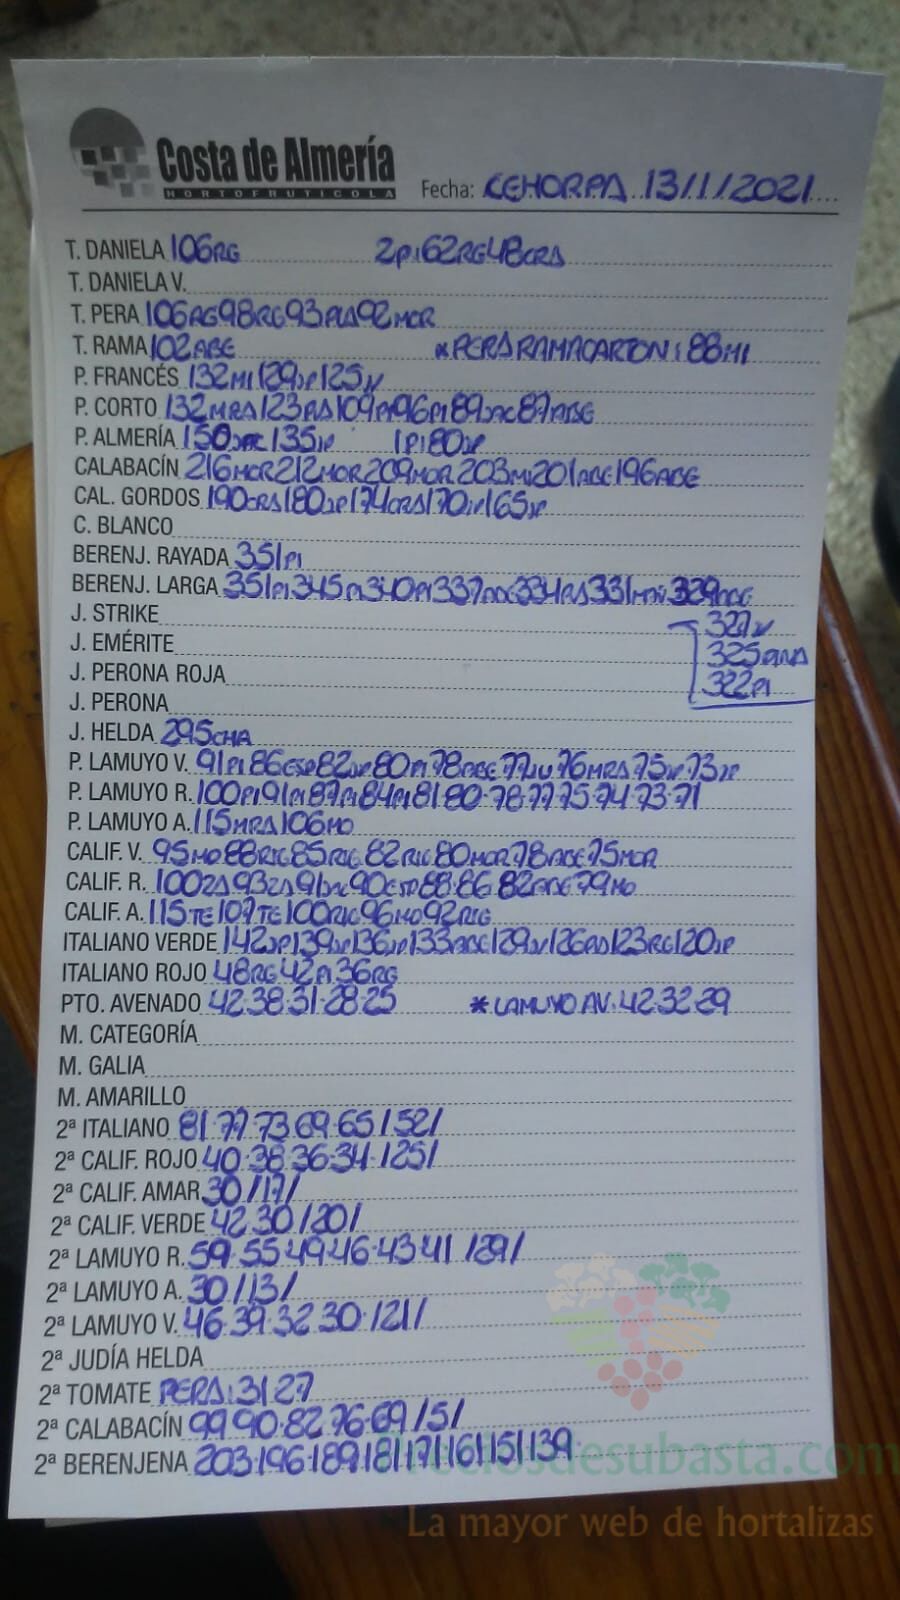 Costa de Almería
HORTOFRUTICOLA
Fecha: CEHORPA 13/1/2021
T. DANIELA 106RG 2Pi62RG48CRA
T. DANIELA V.
T. PERA 106AG98RG93PLA92MOR
T. RAMA 102ABE *PERA RAMA CARTON: 88MI
P. FRANCÉS 132MI129JP125JV
P. CORTO 132MRA123RA109Pi96Pi89JAC87ABE
P. ALMERÍA 150 135JP 1Pi80JP
CALABACÍN 216MOR212MOR209MOR203MI201ABE196ABE
CAL. GORDOS 190CRA180JP174CRA170JV165JP
C. BLANCO
BERENJ. RAYADA 351Pi
BERENJ. LARGA 351Pi345Pi340Pi337 334RA331 329ABE
J. STRIKE 327JV
J. EMÉRITE 325
J. PERONA ROJA 322Pi
J. PERONA
J. HELDA 295CHA
P. LAMUYO V. 91Pi86ESP82JP80Pi78ABE77JV76MRA75JP73JP
P. LAMUYO R. 100Pi91Pi87Pi84Pi81·80·78·77·75·74·73·71
P. LAMUYO A. 115MRA106MO
CALIF. V. 95MO88RIC85RIG82RIG80MOR78ABE75MOR
CALIF. R. 100ZA93ZA91JAC90ESP88·86·82ABE79MO
CALIF. A. 115TE107TE100RIG96MO92RIG
ITALIANO VERDE 142JP139JP136JP133ABE129JV126RA123RG120JP
ITALIANO ROJO 48RG42Pi36RG
PTO. AVENADO 42·38·31·28·25 *LAMUYO AV: 42·32·29
M. CATEGORÍA
M. GALIA
M. AMARILLO
2ª ITALIANO 81·77·73·69·65/52/
2ª CALIF. ROJO 40·38·36·34·/25/
2ª CALIF. AMAR 30/17/
2ª CALIF. VERDE 42·30/20/
2ª LAMUYO R. 59·55·49·46·43·41/29/
2ª LAMUYO A. 30/13/
2ª LAMUYO V. 46·39·32·30·/21/
2ª JUDÍA HELDA
2ª TOMATE PERA: 31·27
2ª CALABACÍN 99·90·82·76·69/51
2ª BERENJENA 203·196·189·181·171·161·151·139
Preciosdesubasta.com
La mayor web de hortalizas